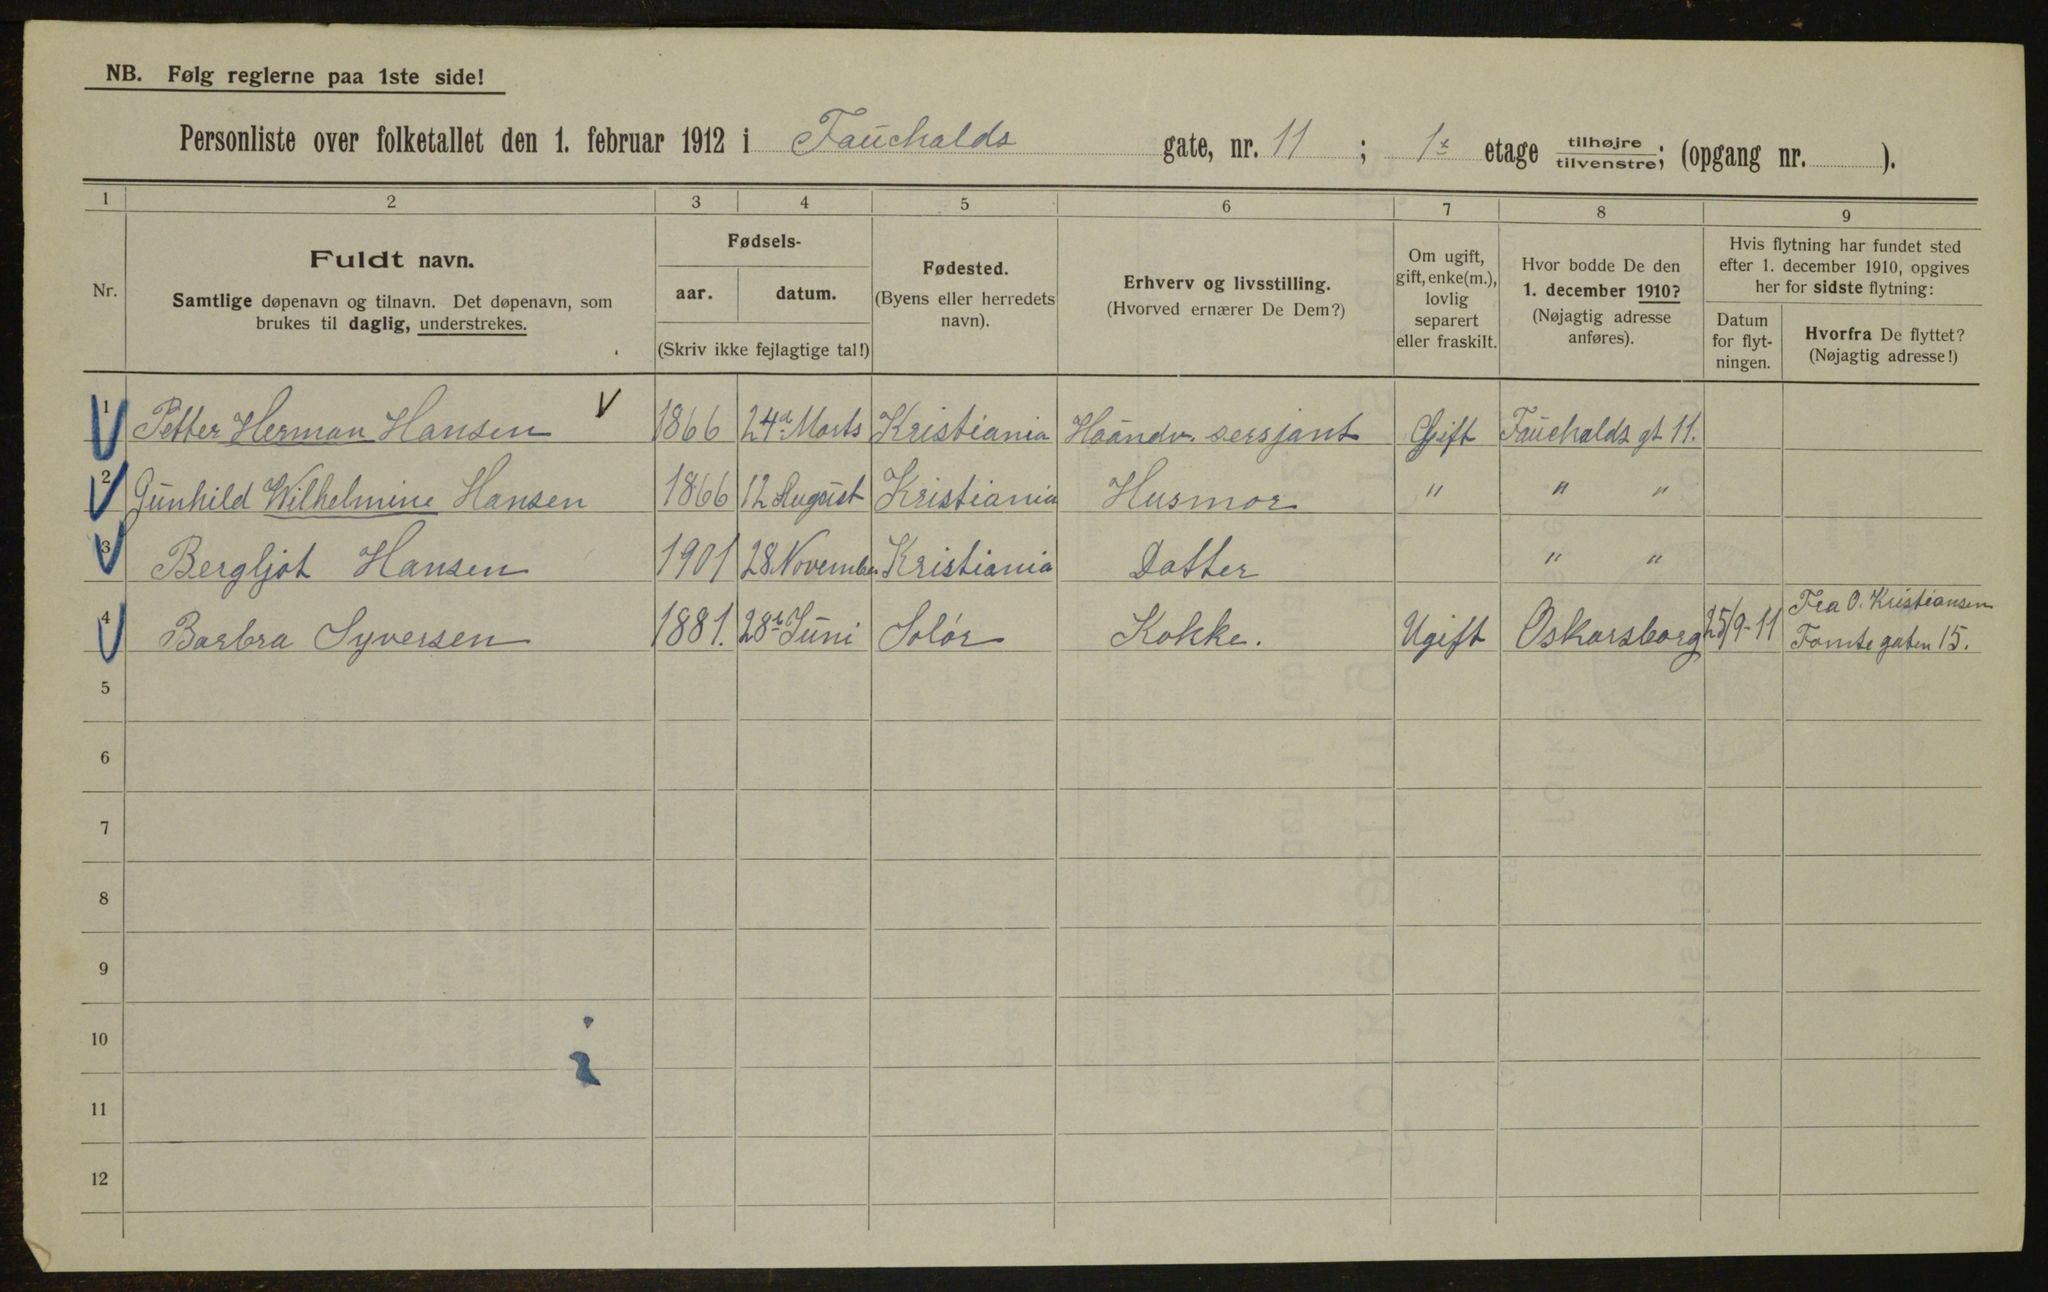 NB. Følg reglerne paa 1ste side!
Personliste over folketallet den 1. februar 1912 i Fauchalds gate, nr. 11 ; 1ste etage tilhøjre tilvenstre; (opgang nr. ).
1 2 3 4 5 6 7 8 9
Nr.
Fuldt navn.
Samtlige døpenavn og tilnavn. Det døpenavn, som
brukes til daglig, understrekes.
Fødsels-
aar. datum.
(Skriv ikke fejlagtige tal!)
Fødested.
(Byens eller herredets
navn).
Erhverv og livsstilling.
(Hvorved ernærer De Dem?)
Om ugift,
gift, enke(m.),
lovlig
separert
eller fraskilt.
Hvor bodde De den
1. december 1910?
(Nøjagtig adresse
anføres).
Hvis flytning har fundet sted
efter 1. december 1910, opgives
her for sidste flytning:
Datum
for flyt-
ningen.
Hvorfra De flyttet?
(Nøjagtig adresse!)
1 Petter Herman Hansen 1866 24d Marts Kristiania Haandv. sersjant Gift Fauchalds gt 11.
2 Gunhild Wilhelmine Hansen 1866 12 August Kristiania Husmor " " "
3 Bergljot Hansen 1901 28 November Kristiania Datter " "
4 Barbra Syversen 1881. 28 Juni Solør Kokke. Ugift Oskarsborg 25/9-11 Fra O. Kristiansen
Tomtegaten 15.
5
6
7
8
9
10
11
12